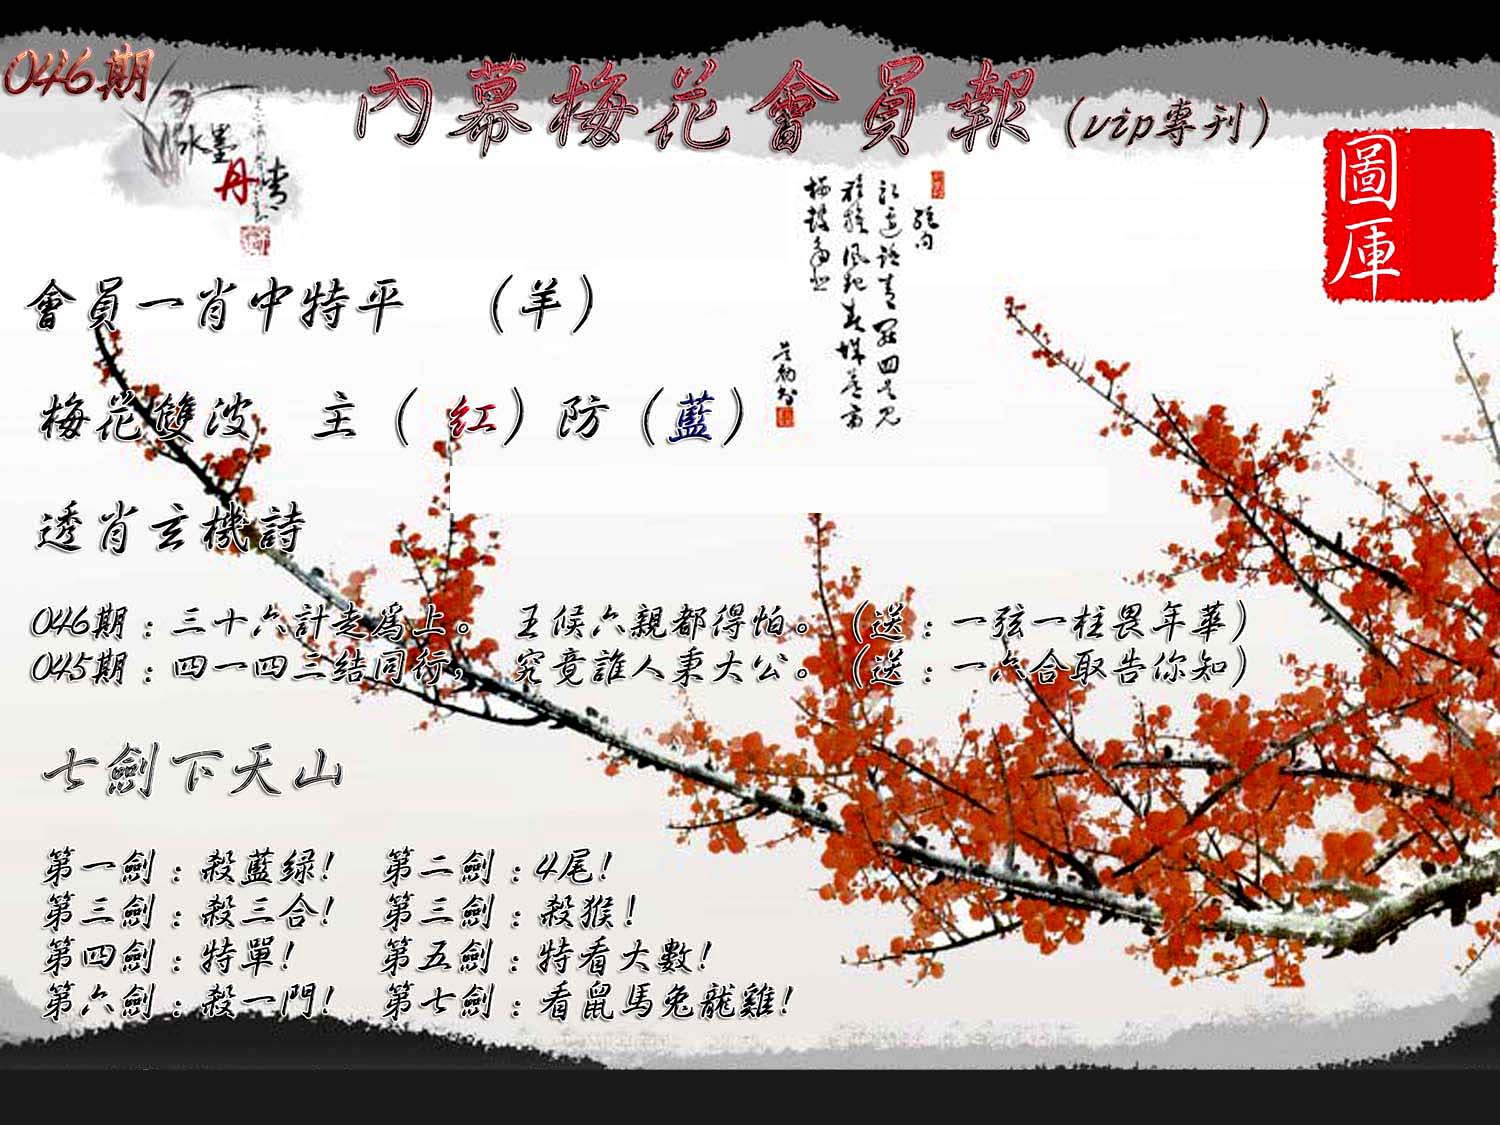 046期
內幕梅花會員報(vip專刊)
水墨
丹青
圖庫
會員一肖中特平 （羊）
梅花雙波 主（ 紅）防（藍）
透肖玄機詩
046期：三十六計走為上。 王候六親都得怕。（送：一弦一柱畏年華）
045期：四一四三结同行， 究竟誰人秉大公。（送：一六合取告你知）
七劍下天山
第一劍：殺藍绿！ 第二劍：4尾！
第三劍：殺三合！ 第三劍：殺猴！
第四劍：特單！ 第五劍：特看大數！
第六劍：殺一門！ 第七劍：看鼠馬兔龍雞！